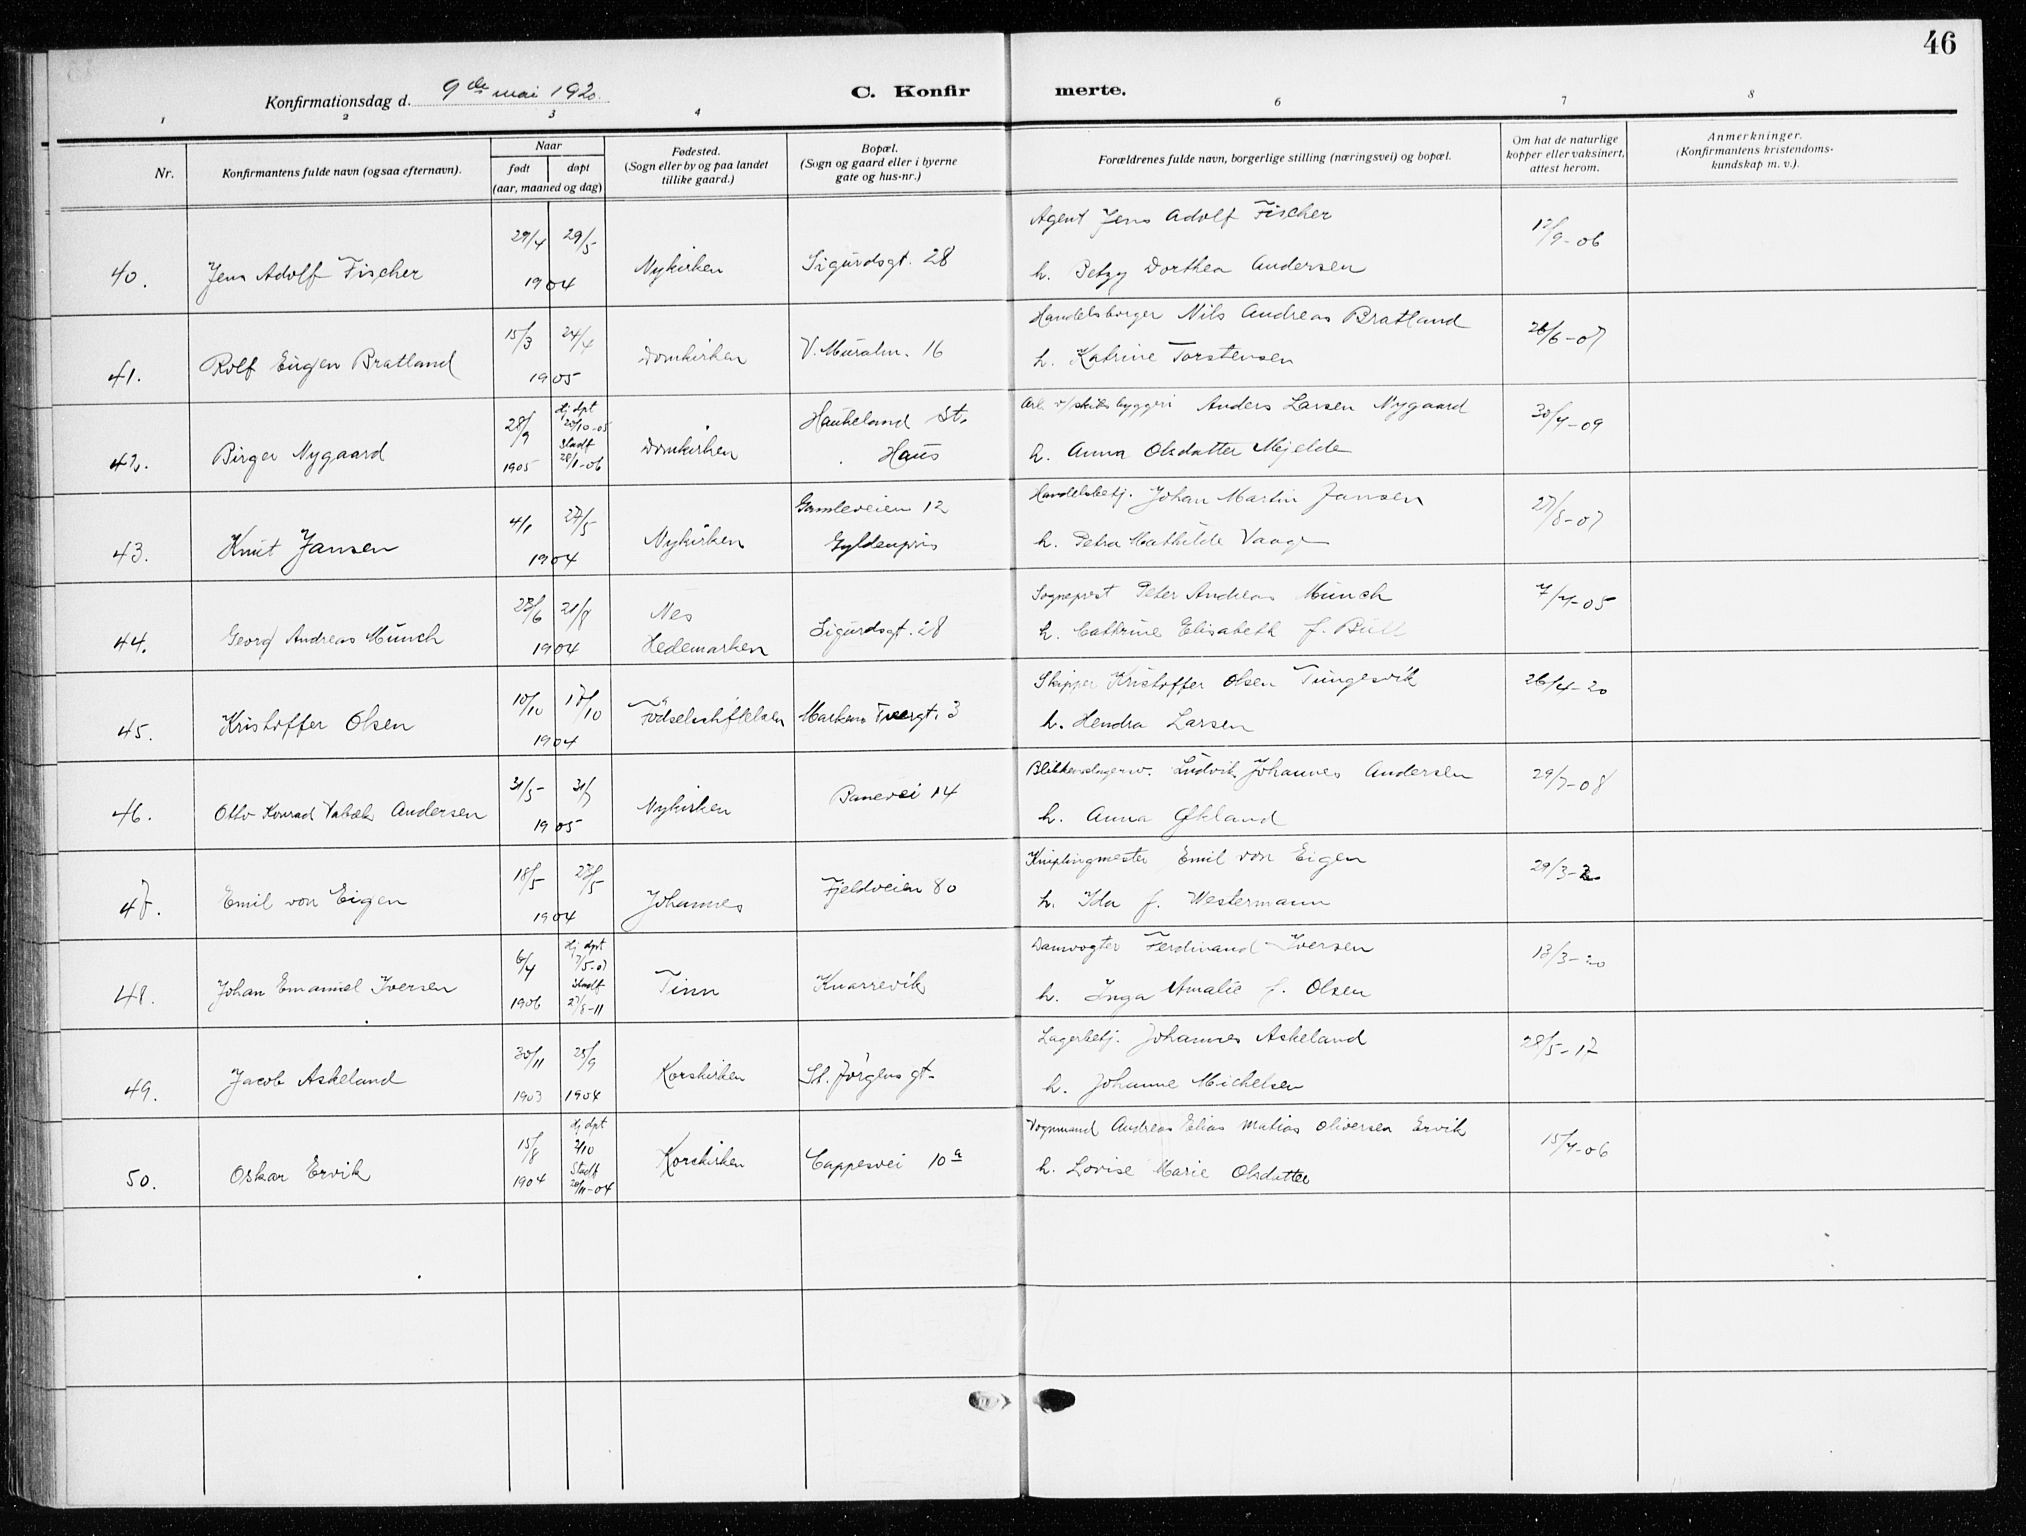 46
Konfirmationsdag d. 9de mai 1920.
C. Konfirmerte.
1 2 3 4 6 7 8
Nr.
Konfirmantens fulde navn (ogsaa efternavn).
Naar
født døpt
(aar, maaned og dag)
Fødested.
(Sogn eller by og paa landet
tillike gaard.)
Bopæl.
(Sogn og gaard eller i byerne
gate og hus-nr.)
Forældrenes fulde navn, borgerlige stilling (næringsvei) og bopæl.
Om hat de naturlige
kopper eller vaksinert,
attest herom.
Anmerkninger.
(Konfirmantens kristendoms-
kundskap m. v.).
40. Jens Adolf Fischer 29/4 29/5 1904 Nykirken Sigurdsgt. 28
Agent Jens Adolf Fischer
h. Petzy Dorthea Andersen
12/9-06
41. Rolf Eugen Bratland 15/3 24/4 1905 Domkirken V. Muralm. 16
Handelsborger Nils Andreas Bratland
h. Katrine Torstensen
26/6-07
42. Birger Nygaard 28/9 1905 Hj dpt 20/10-05 Stadf 28/1-06 Domkirken Haukeland St. Haus
Arb. v/skibsbyggeri Anders Larsen Nygaard
h. Anna Olsdatter Mjelde
30/4-09
43. Knut Jansen 4/1 27/5 1904 Nykirken Gamleveien 12 Gyldenpris
Handelsbetj. Johan Martin Jansen
h. Petra Mathilde Vaage
27/8-07
44. Georg Andreas Münch 28/6 21/8 1904 Nes Hedemarken Sigurdsgt. 28
Sogneprest Peter Andreas Münch
h. Cathrine Elisabeth f. Bull
7/4-05
45. Kristoffer Olsen 10/10 17/10 1904 Fødselsstiftelsen Markens Tvergt. 3
Skipper Kristoffer Olsen Tungesvik
h. Hendra Larsen
26/4-20
46. Otto Konrad Vabæk Andersen 31/5 31/7 1905 Nykirken Banevei 14
Blikkenslagersv. Ludvik Johannes Andersen
h. Anna Økland
29/7-08
47. Emil von Eigen 18/5 27/5 1904 Johannes Fjeldveien 80
Kniplingmester Emil von Eigen
h. Ida f. Westermann
29/3-20
48. Johan Emanuel Iversen 6/4 1906 Hj dpt 7/5-07 Stadf 27/8-11 Tinn Knarrevik
Damvogter Ferdinand Iversen
h. Inga Amalie f. Olsen
13/3-20
49. Jacob Askeland 30/11 1903 25/9 1904 Korskirken St. Jørgensgt.
Lagerbetj. Johannes Askeland
h. Johanne Michelsen
28/5-17
50. Oskar Ervik 15/8 1904 Hj dpt 2/10 Stadf 20/11-04 Korskirken Cappesvei 10a
Vognmand Andreas Elias Matias Oliversen Ervik
h. Lovise Marie Olsdatter
15/4-06